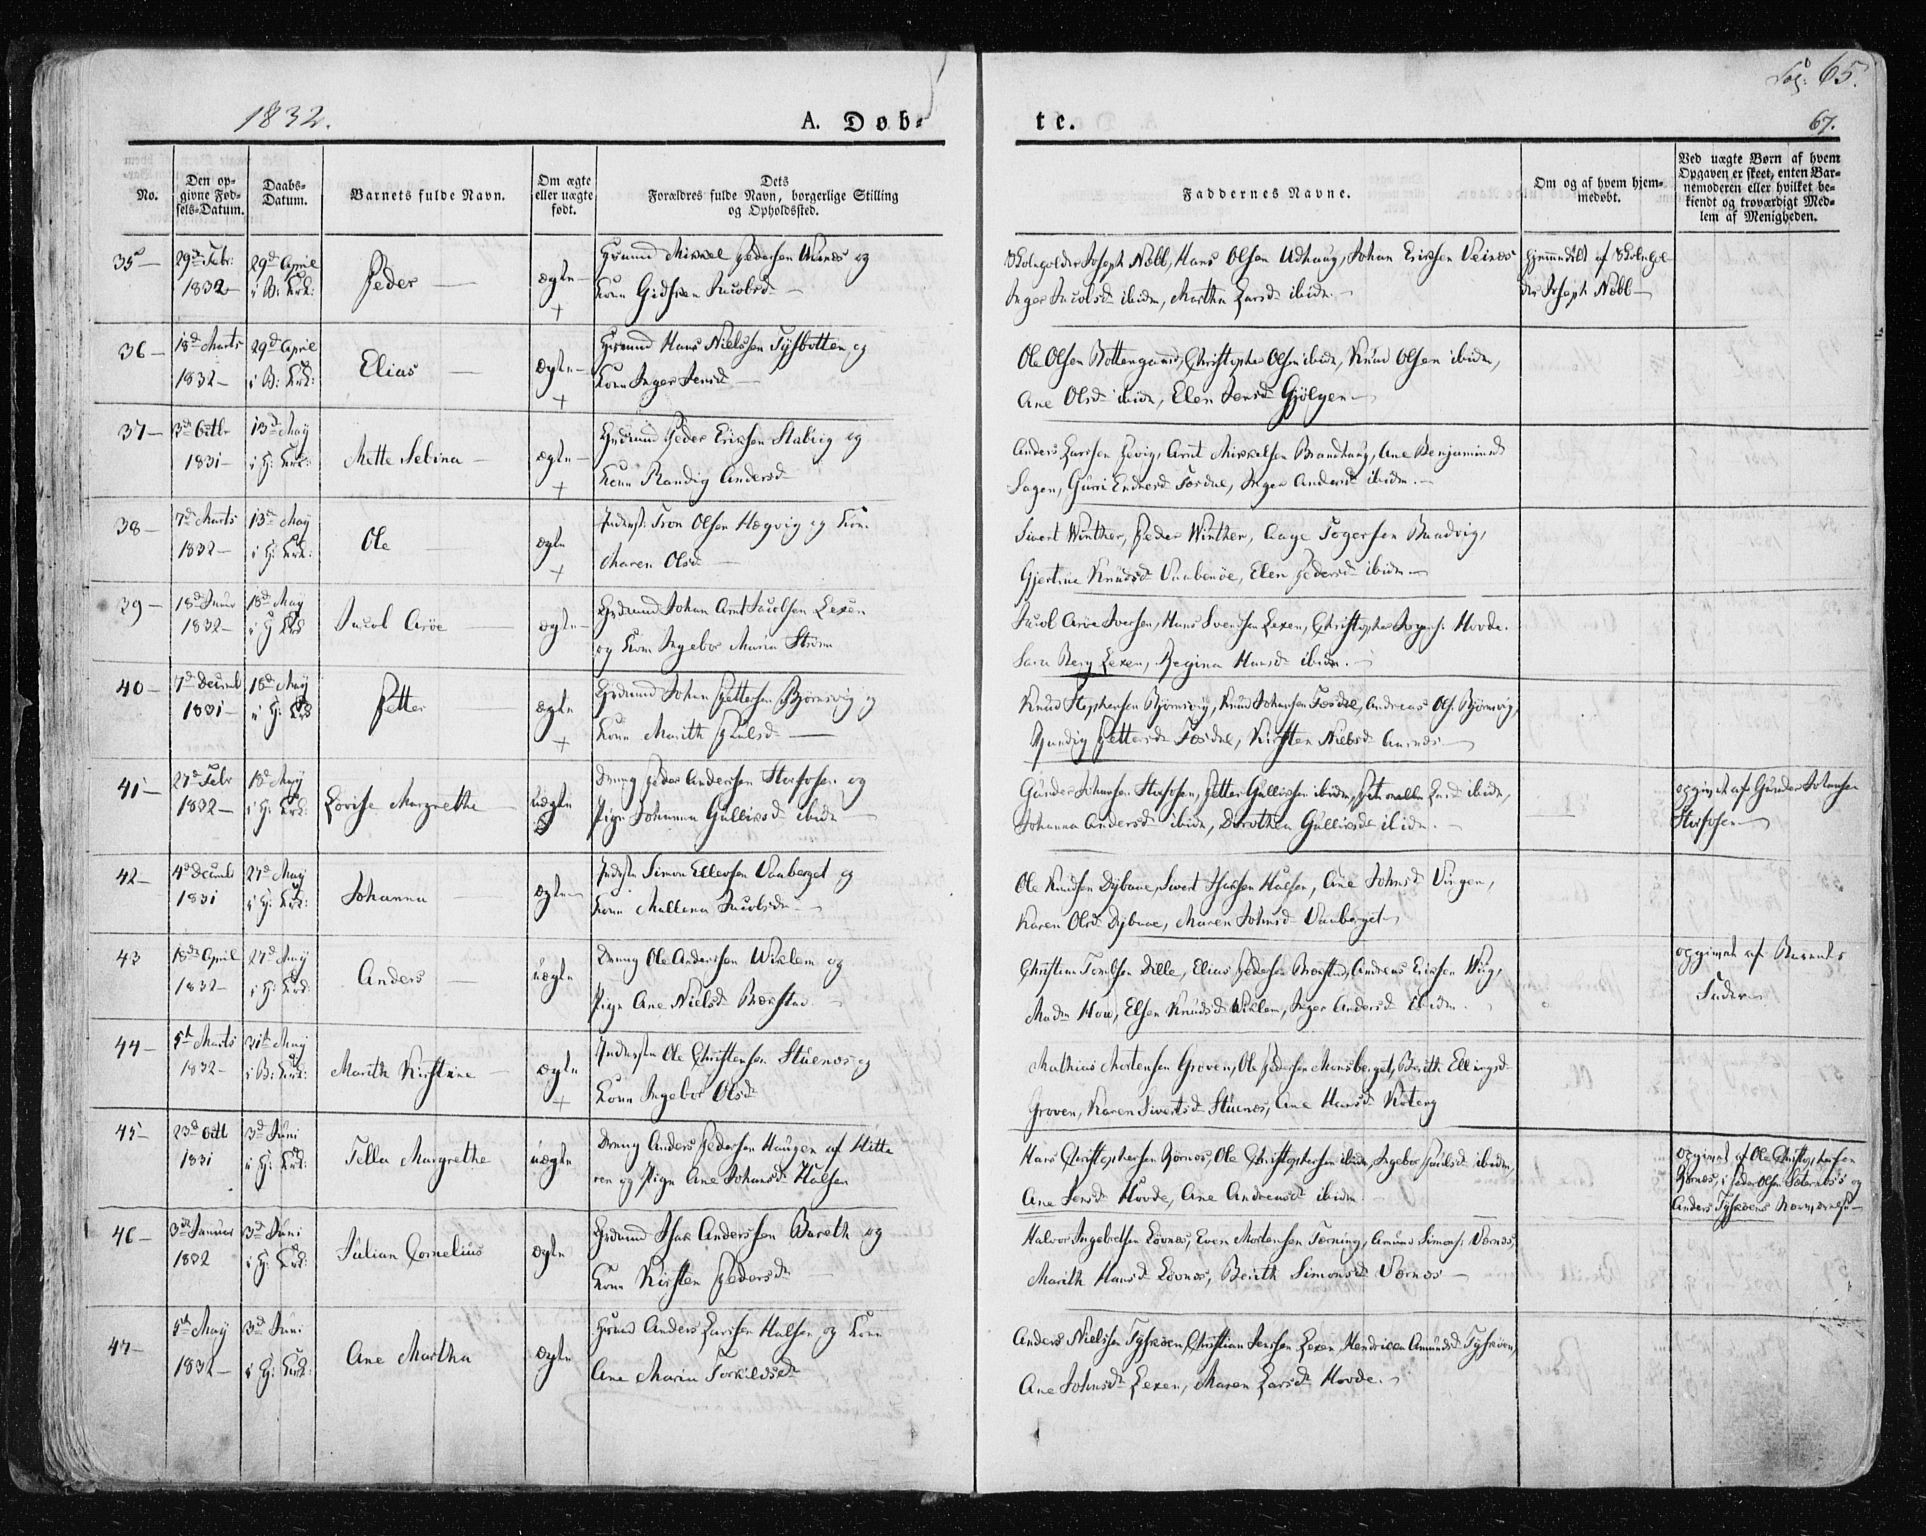 1832.
A. Døb-
te.
Fol: 65.
67.
No.
Den op-
givne Fød-
sels-Datum.
Daabs-
Datum.
Barnets fulde Navn.
Om ægte
eller uægte
født.
Dets
Forældres fulde Navn, borgerlige Stilling
og Opholdssted.
Faddernes Navne.
Om og af hvem hjem-
medøbt.
Ved uægte Børn af hvem
Opgaven er skeet, enten Bar-
nemoderen eller hvilket be-
kiendt og troværdigt Med-
lem af Menigheden.
35
29d Febr:
1832
29d April
i B: Krk:
Peder
ægte
+
Mikkel Pedersen og
Kone Jacobsd
Skoleholder Joseph Næbb, Hans Olsen Udhaug, Johan Eriksen Veines
Inger Jacobsd ibidm, Martha Larsd ibidm
hjemmedøbt af Skolehol-
der Joseph Næbb
36
18d Marts
1832
29d April
i B: Krk:
Elias
ægte
+
Hans Nielssen Sysbotten og
Kone Inger Jensd
Ole Olsen Bottengaard, Christopher Olsen ibidm, Knud Olsen ibidm,
Ane Olsd ibidm, Elen Jensd Gjølgen
37
3d Octbr
1831
13d May
i H: Krk:
Mette Sebina
ægte
+
Peder Eriksen Stabvig og
Kone Randig Andersd
Anders Larssen Hevig, Arnt Mikkelsen Brandhaug, Ane Benjaminsd
Sagen, Gurri Endresd Fosdal, Inger Andersd ibidm
38
7d Marts
1832
13d May
i H: Krk:
Ole
ægte
+
Inderst: Tron Olsen Hegvig og Kon.
Maren Olsd
Sivert Winther, Peder Winther, Aage Togersen Baadvig,
Gjertine Knudsd Vaabenøe, Elen Pedersd ibidm
39
18d Janr
1832
18d May
i H Krk
Jacob Arøe
ægte
Johan Arnt Jacobsen Lexen
og Kone Ingebor Maria Strøm
Jacob Arøe Iversen, Hans Svendsen Lexen, Christopher Hovde.
Sara Berg Lexen, Regina Hansd ibidm.
40
7d Decemb
1831
18d May
i H: Krk
Petter
ægte
+
Johan Pettersen Bjørnsvig og
Kone Marith
Knud Stephensen Bjørnsvig, Knud Johansen Fosdal, Andreas Ols. Bjørnsvig,
Randig Pettersd Fosdal, Kirsten Nielsd Aunes
41
27d Febr
1832
18d May
i H: Krk:
Lovise Margrethe
uægte
Dreng Peder Anderssen Storfosen og
Pige Johanna Gulliksd ibidm
Gunder Johansen Storfosen, Petter Gulliksen ibidm, Petronelle ibidm,
Johanna Andersd ibidm, Dorothea Gulliksd ibidm.
opgivet af Gunder Johansen
Storfosen
42
4d Decemb
1831
27d May
i H: Krk:
Johanna
ægte
Inderst Simon Ellevsen Vaaberget og
Kone Mallena Jacobsd
Ole Knudsen Dybvae, Sivert Isaksen Halsen, Ane Johnsd Vingen,
Karen Olsd Dybvae, Maren Johnsd Vaaberget
43
18d April
1832
27d May
i H: Krk:
Anders
uægte
Dreng Ole Anderssen Wiklem og
Pige Ane Nielsd Borstad
Christian Dille, Elias Pedersen Borstad, Andreas Eriksen Wiig,
Madm Hou, Elsen Knudsd Wiklem, Inger Andersd ibidm.
opgivet af Barnets
Fader
44
5d Marts
1832
31d May
i B: Krk:
Marith Kirstine
ægte
+
Indersten Ole Christensen Stuenes og
Kone Ingebor Olsd
Mathias Mortensen Groven, Ole Pedersen Monsberget, Berith Ellingsd
Groven, Karen Sivertsd Stuenes, Ane Hansd Koteng
45
23d Octb
1831
3d Juni
i H: Krk:
Tella Margrethe
uægte
Dreng Anders Pedersen Haugen af Hitte
ren og Pige Ane Johansd Halsen
Hans Christophersen Børnes, Ole Christophersen ibidm, Ingebor ibidm,
Ane Jensd Hovde, Ane Andreasd ibidm.
opgivet af Ole Christophersen
Børnes, Peder Olsen og
Anders
46
3d Januar
1832
3d Juni
i H: Krk:
Julian Cornelius
ægte
Isak Anderssen Bareth og
Kone Kirsten Pedersd
Halvor Ingebretsen Løvnes, Even Mortensen Tørning, Amund Simons: Vernes,
Marith Hansd Løvnes, Berith Simonsd Vernes
47
5d May
1832
3d Juni
i H: Krk:
Ane Martha
ægte
Anders Larssen Halsen og Kone
Ane Maria Torkildsd
Anders Nielssen Tyskøen, Christian Jenssen Lexen, Hendrikka Amundsd Tyskøen,
Ane Johnsd Lexen, Maren Larsd Hovde.